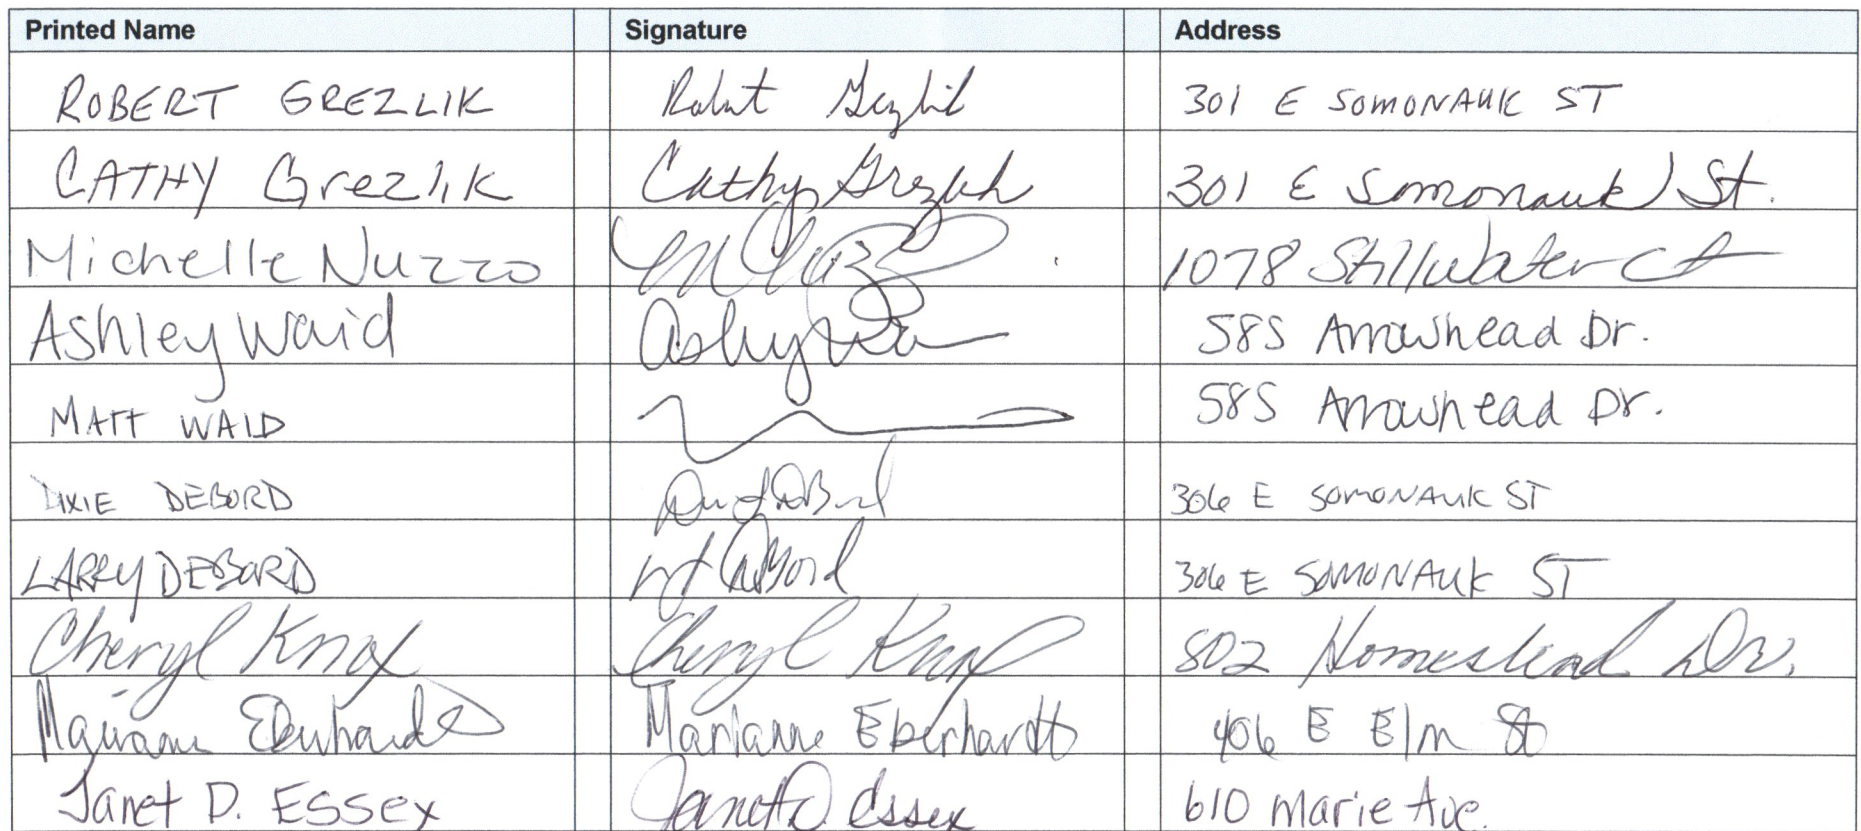 Printed Name Signature Address
ROBERT GREZLIK Robert Grezlik 301 E SOMONAUK ST
CATHY Grezlik Cathy Grezlik 301 E Somonauk St.
Michelle Nuzzo 1078 Stillwater Ct
Ashley Waid Ashley 585 Arrowhead Dr.
MATT WAID 585 Arrowhead Dr.
DIXIE DEBORD 306 E SOMONAUK ST
LARRY DEBORD DeBord 306 E SOMONAUK ST
Cheryl Knox Cheryl Knox 802 Homestead Dr.
Marianne Eberhardt Marianne Eberhardt 406 E Elm St
Janet D. Essex Janet D. Essex 610 Marie Ave.